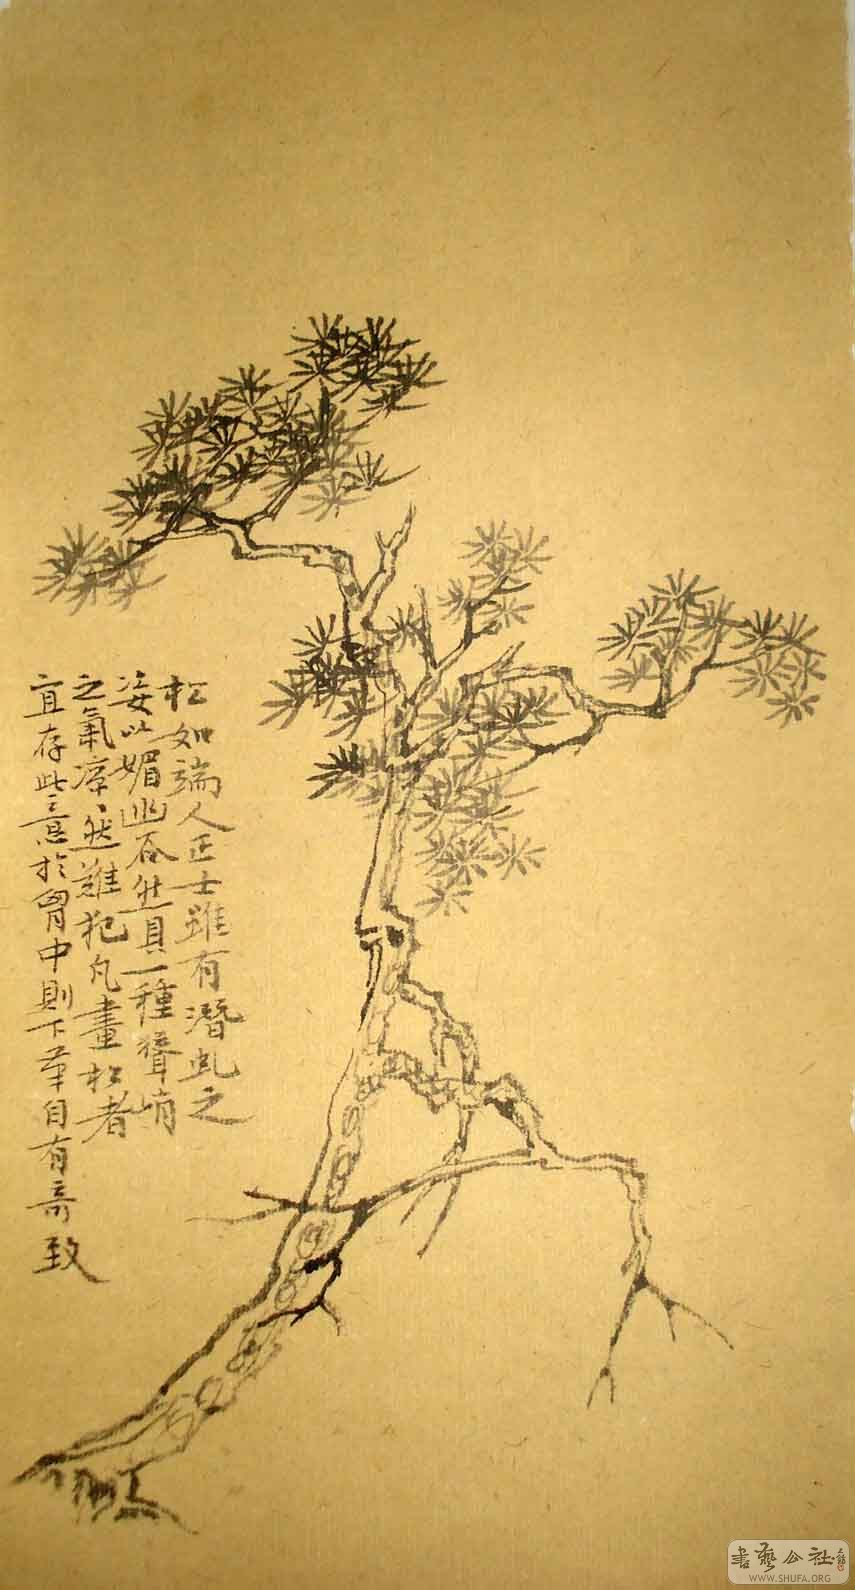 松如端人正士雖有潛虬之
姿以媚幽谷然具一種聳峭
之氣凛、然難犯凡畫松者
宜存此意於胷中則下筆自有奇致
書藝公社
WWW.SHUFA.ORG